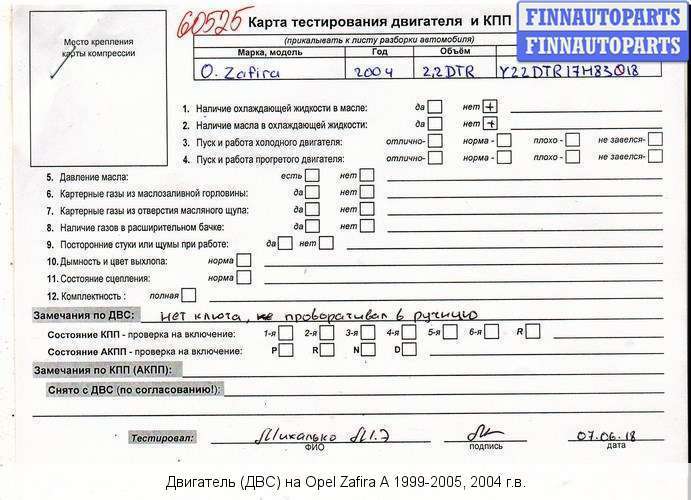 60525 Карта тестирования двигателя и КПП
FINNAUTOPARTS
FINNAUTOPARTS
(прикалывать к листу разборки автомобиля)
Место крепления
карты компрессии
Марка, модель Год Объём
O. Zafira 2004 2,2DTR Y22DTR17H83018
1. Наличие охлаждающей жидкости в масле: да нет +
2. Наличие масла в охлаждающей жидкости: да нет +
3. Пуск и работа холодного двигателя: отлично- норма - плохо - не завелся-
4. Пуск и работа прогретого двигателя: отлично- норма - плохо - не завелся-
5. Давление масла: есть нет
6. Картерные газы из маслозаливной горловины: да нет
7. Картерные газы из отверстия масляного щупа: да нет
8. Наличие газов в расширительном бачке: да нет
9. Посторонние стуки или шумы при работе: да нет
10. Дымность и цвет выхлопа: норма
11. Состояние сцепления: норма
12. Комплектность : полная
Замечания по ДВС: нет ключа, не проворачивал в ручную
Состояние КПП - проверка на включение: 1-я 2-я 3-я 4-я 5-я 6-я R
Состояние АКПП - проверка на включение: P R N D
Замечания по КПП (АКПП):
Снято с ДВС (по согласованию!):
Тестировал: Михалько М.Э 07.06.18
ФИО подпись дата
Двигатель (ДВС) на Opel Zafira A 1999-2005, 2004 г.в.